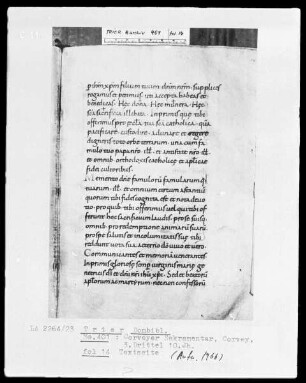 TRIER BOMBIBL 401 fol 14
p dnm xpm filium tuum dnm nrm. supplices
rogamus et petimus. uti accepta habeas et
benedicas. Hęc dona. Hęc munera. Hęc
sc̄a sacrificia illibata. Inprimis quę tibi
offerimus pro ęcclesia tua sc̄a catholica. quā
pacificare. custodire. adunare et regere
digneris toto orbe terrarum. una cum fa
mulo tuo papa nro
et omnib orthodoxis catholicę et aplicę
fidei cultoribus.
Memento dnē famulorū famularumq;
tuarum. et omnium circum astantiū
quorum tibi fides cognita est et nota deuo
tio. pro quib tibi offerimus uel qui tibi of
ferunt hoc sacrificium laudis. pro se suisq;
omnib. pro redemptione animarū suarū
pro spe salutis et incolomitatis suę tibi
reddunt uota sua aeterno dō uiuo et uero.
Communicantes et memoriam uenerantes
Inprimis gloriosę semp uirginis marię ge
netricis dī et dnī nrī ihū xpī. Sed et beatorū
aplorum ac martyrum tuorum
LA 2264/23
Trier Dombibl.
No.401 : Corveyer Sakramentar, Corvey,
3.Drittel 10.Jh.
fol 14 Textseite
(Aufn. 1966)